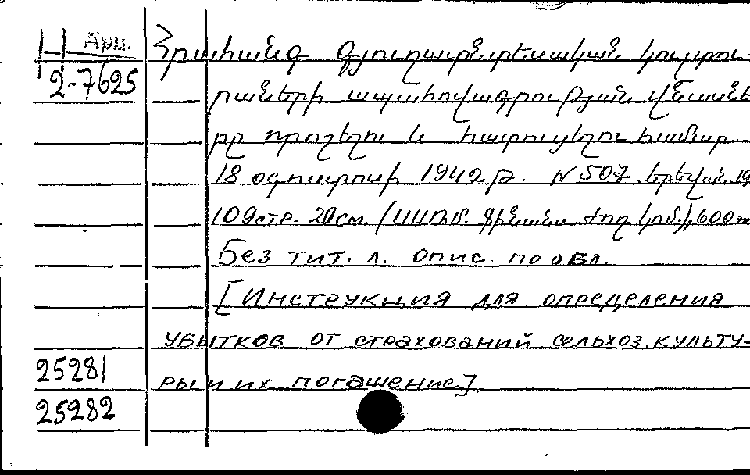 Ц Арм. Հրահանգ գյուղատնտեսական կուլտու-
2-7625 րաների ապահովագրության վնասնե
րը որոշելու և հատուցելու համար
18 օգոստոսի 1940 թ. N 507. Երևան, 19
109стр. 20см. (ՍՍՌՄ. Ֆինանս ժող կոմ.), 600
Без тит. л. опис. по обл.
[Инструкция для определения
убытков от страхований сельхоз. культу-
25281 ры и их погашение]
25282